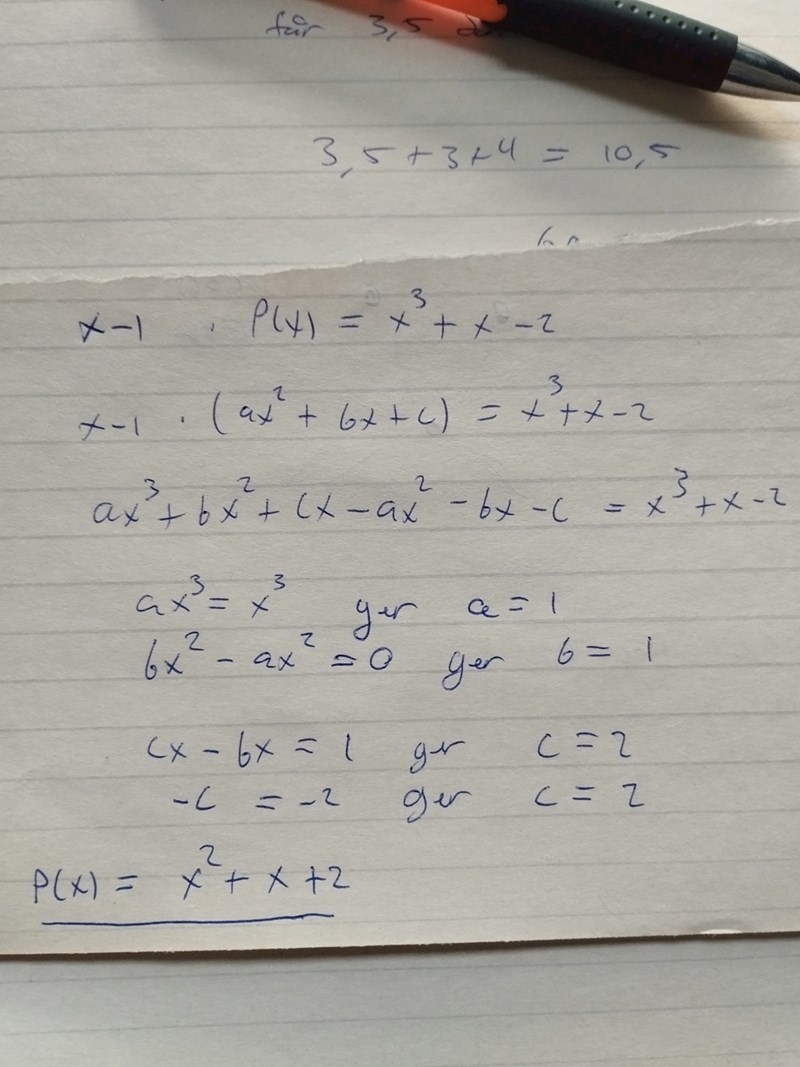 får 3,5
3,5+3+4 = 10,5
x-1 · P(x) = x³ + x - 2
x-1 · (ax² + bx + c) = x³+x-2
ax³ + bx² + cx - ax² - bx - c = x³ + x - 2
ax³ = x³ ger a = 1
bx² - ax² = 0 ger b = 1
cx - bx = 1 ger c = 2
-c = -2 ger c = 2
P(x) = x² + x + 2